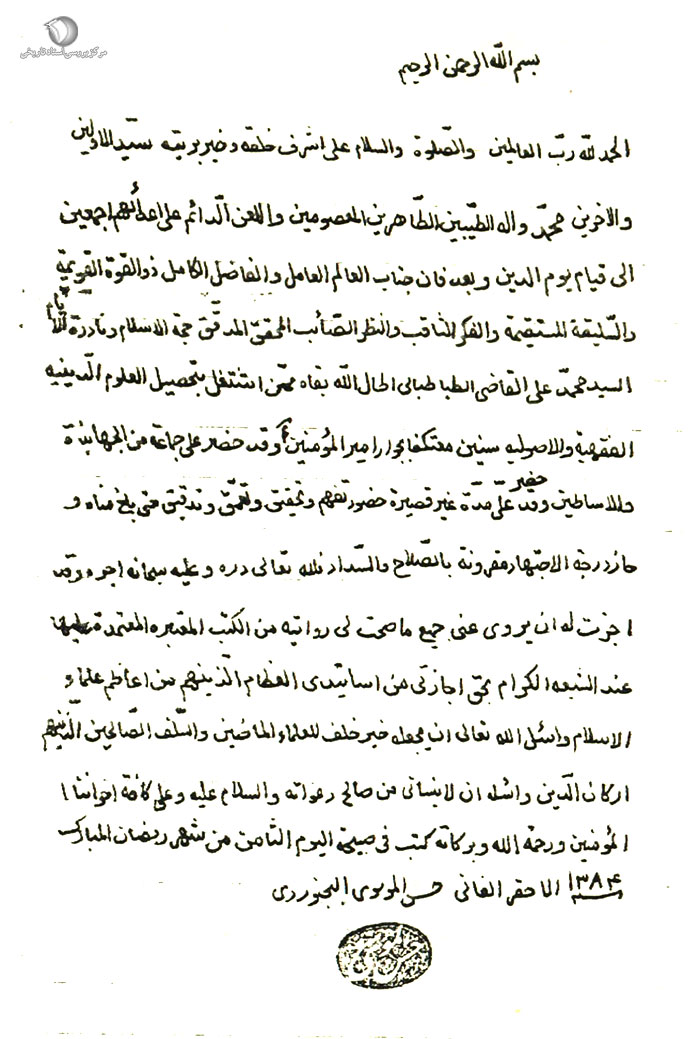 مرکز بررسی اسناد تاریخی
بسم الله الرحمن الرحیم
الحمد لله ربّ العالمین والصّلوة والسلام علی اشرف خلقه وخیر بریته سیّد الاولین
والاخرین محمّد واله الطیّبین الطّاهرین المعصومین واللعن الدائم علی اعدائهم اجمعین
الی قیام یوم الدین وبعد فان جناب العالم العامل والفاضل الکامل ذو القوة القویمة
والسّلیقة المستقیمة والفکر الثاقب والنظر الصّائب المحقق المدقّق حجة الاسلام ونادرة الایّام
السید محمّد علی القاضی الطباطبائی اطال الله بقاه ممّن اشتغل بتحصیل العلوم الدّینیه
الفقهیة والاصولیه سنین معتکفا بجوار امیر المؤمنین ع وقد حضر علی جماعة من الجهابذة
والاساطین وقد حضر علیّ مدّة غیر قصیرة حضور تفهم وتحقیق وتعمّق وتدقیق حتی بلغ مناه و
حاز درجة الاجتهاد مقرونة بالصّلاح والسّداد فلله تعالی دره وعلیه سبحانه اجره وقد
اجزت له ان یروی عنی جمیع ما صحت لی روایته من الکتب المعتبره المعتمدة علیها
عند الشیعه الکرام بحق اجازتی من اساتیدی العظام الّذینهم من اعاظم علماء
الاسلام واسئل الله تعالی ان یجعله خیر خلف للعلماء الماضین والسّلف الصّالحین الّذینهم
ارکان الدّین واسئله ان لاینسانی من صالح دعواته والسلام علیه وعلی کافة اخواننا
المؤمنین ورحمة الله وبرکاته کتب فی صبیحة الیوم الثامن من شهر رمضان المبارک
سنه ۱۳۸۴ الاحقر الفانی حسن الموسوی البجنوردی